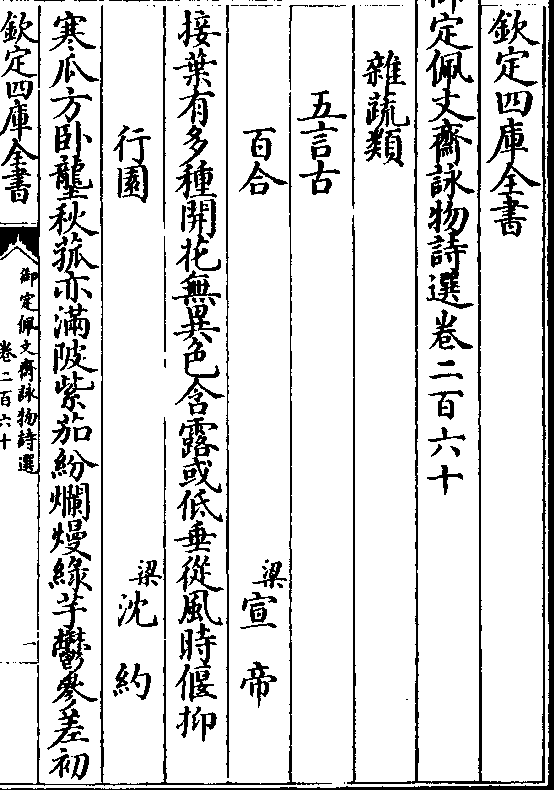 欽定四庫全書
御定佩文齋詠物詩選卷二百六十
雜蔬類
五言古
百合
梁宣帝
接葉有多種開花無異色含露或低垂從風時偃抑
行園
梁沈約
寒瓜方卧壟秋菰亦滿陂紫茄紛爛熳綠芋鬱參差初
欽定四庫全書
御定佩文齋詠物詩選
卷二百六十
一